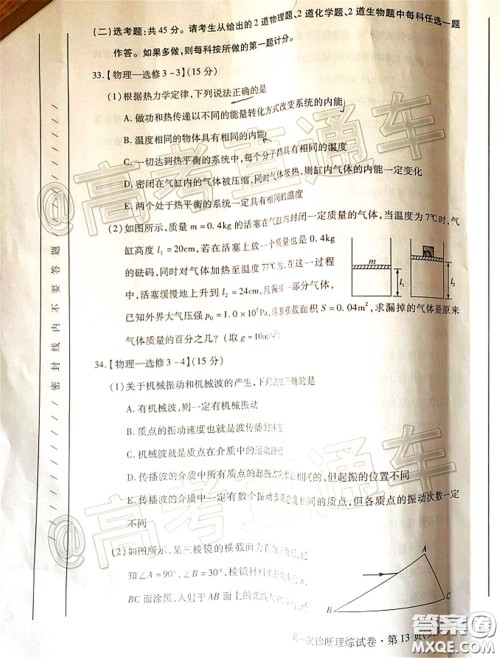 (二)选考题:共45分。请考生从给出的2道物理题、2道化学题、2道生物题中每科任选一题
作答。如果多做,则每科按所做的第一题计分。
33.【物理—选修3-3】(15分)
(1)根据热力学定律,下列说法正确的是
A.做功和热传递以不同的能量转化方式改变系统的内能
B.温度相同的物体具有相同的内能
C.一切达到热平衡的系统,每个分子都具有相同的温度
D.密闭在气缸内的气体被压缩,同时气体吸热,则气缸内气体的内能一定变化
E.两个处于热平衡的系统一定具有相同的温度
(2)如图所示,质量m=0.4kg的活塞在气缸内封闭一定质量的气体,当温度为7℃时,气
缸高度l1=20cm,若在活塞上放一质量也是0.4kg
的砝码,同时对气体加热至温度77℃,在这一过程
中,活塞缓慢地上升到l2=24cm,且漏掉一部分气体,
已知外界大气压强p0=1.0×10⁵Pa,活塞横截面积S=0.04m²,求漏掉的气体是原来
气体质量的百分之几?(取g=10m/s²)
l1
l2
34.【物理—选修3-4】(15分)
(1)关于机械振动和机械波的产生,下列说法正确的是
A.有机械波,则一定有机械振动
B.质点的振动速度也就是波的传播速度
C.机械波就是质点在介质中的运动
D.传播波的介质中所有质点的起振方向相同,但起振的位置不同
E.传播波的介质中一定有数个振动步调相同的质点,但各质点的振动次数一定
不同
(2)如图所示,某三棱镜的横截面为直角三角形,已
知∠A=90°,∠B=30°,棱镜材料的
BC面涂黑,入射光平行于
A
B
C
第一次诊断理综试卷·第13页
密封线内不要答题
@高考直通车
@高考直通车
答案圈
MXQE.COM